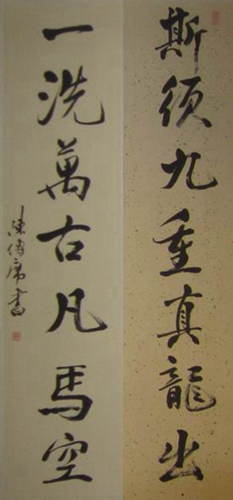 斯须九重真龍出
一洗萬古凡馬空
陳傳席書